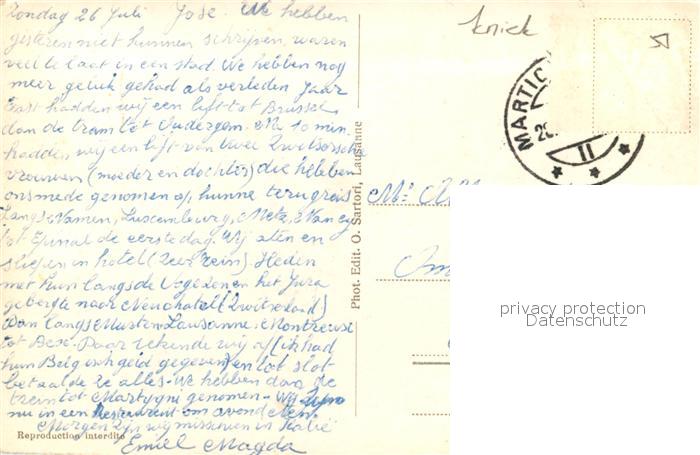 Zondag 26 Juli Jose. We hebben
gisteren niet kunnen schrijven, waren
veel te laat in een stad. We hebben nog
meer geluk gehad als verleden Jaar
Eerst hadden wij een lift tot Brussel,
dan de tram tot Oudergem. Na 10 min.
hadden wij een lift van twee Zwitsersche
vrouwen (moeder en dochter) die hebben
ons mede genomen op hunne terugreis
Langs Namen, Luxemburg, Metz, Nancy
tot Epinal de eerste dag. Wij aten en
sliepen in hotel (zeer rein). Heden
met hun langs de Vogezen en het Jura
gebergte naar Neuchatel (Zwitserland)
Dan langs Lausanne, Montreux
tot Bex. Daar rekende wij af (ik had
hun Belgisch geld gegeven) en tot slot
betaalde ze alles. We hebben dan de
trein tot Martigny genomen. Wij zijn
nu in een Restaurant om avondeten.
Morgen zijn wij misschien in Italië
Emiel Magda
Reproduction interdite
Phot. Edit. O. Sartori, Lausanne
knick
MARTIG
II
privacy protection
Datenschutz